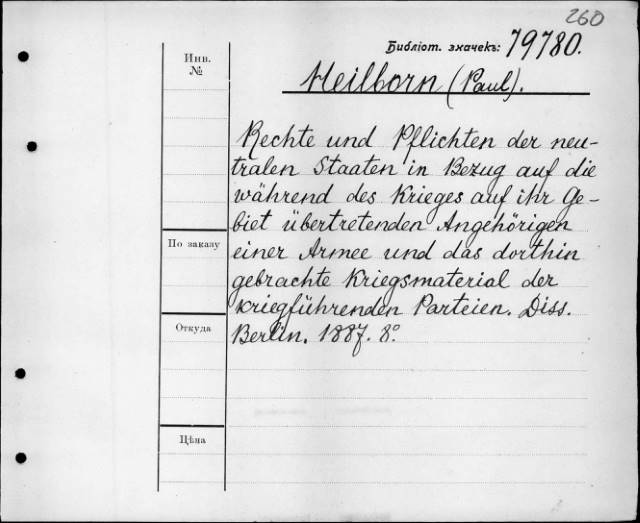 260
Библіот. значекъ: 79780.
Инв.
№
Heilborn (Paul).
Rechte und Pflichten der neu-
tralen Staaten in Bezug auf die
während des Krieges auf ihr Ge-
biet übertretenden Angehörigen
По заказу
einer Armee und das dorthin
gebrachte Kriegsmaterial der
kriegführenden Parteien. Diss.
Откуда
Berlin. 1887. 8°
Цѣна